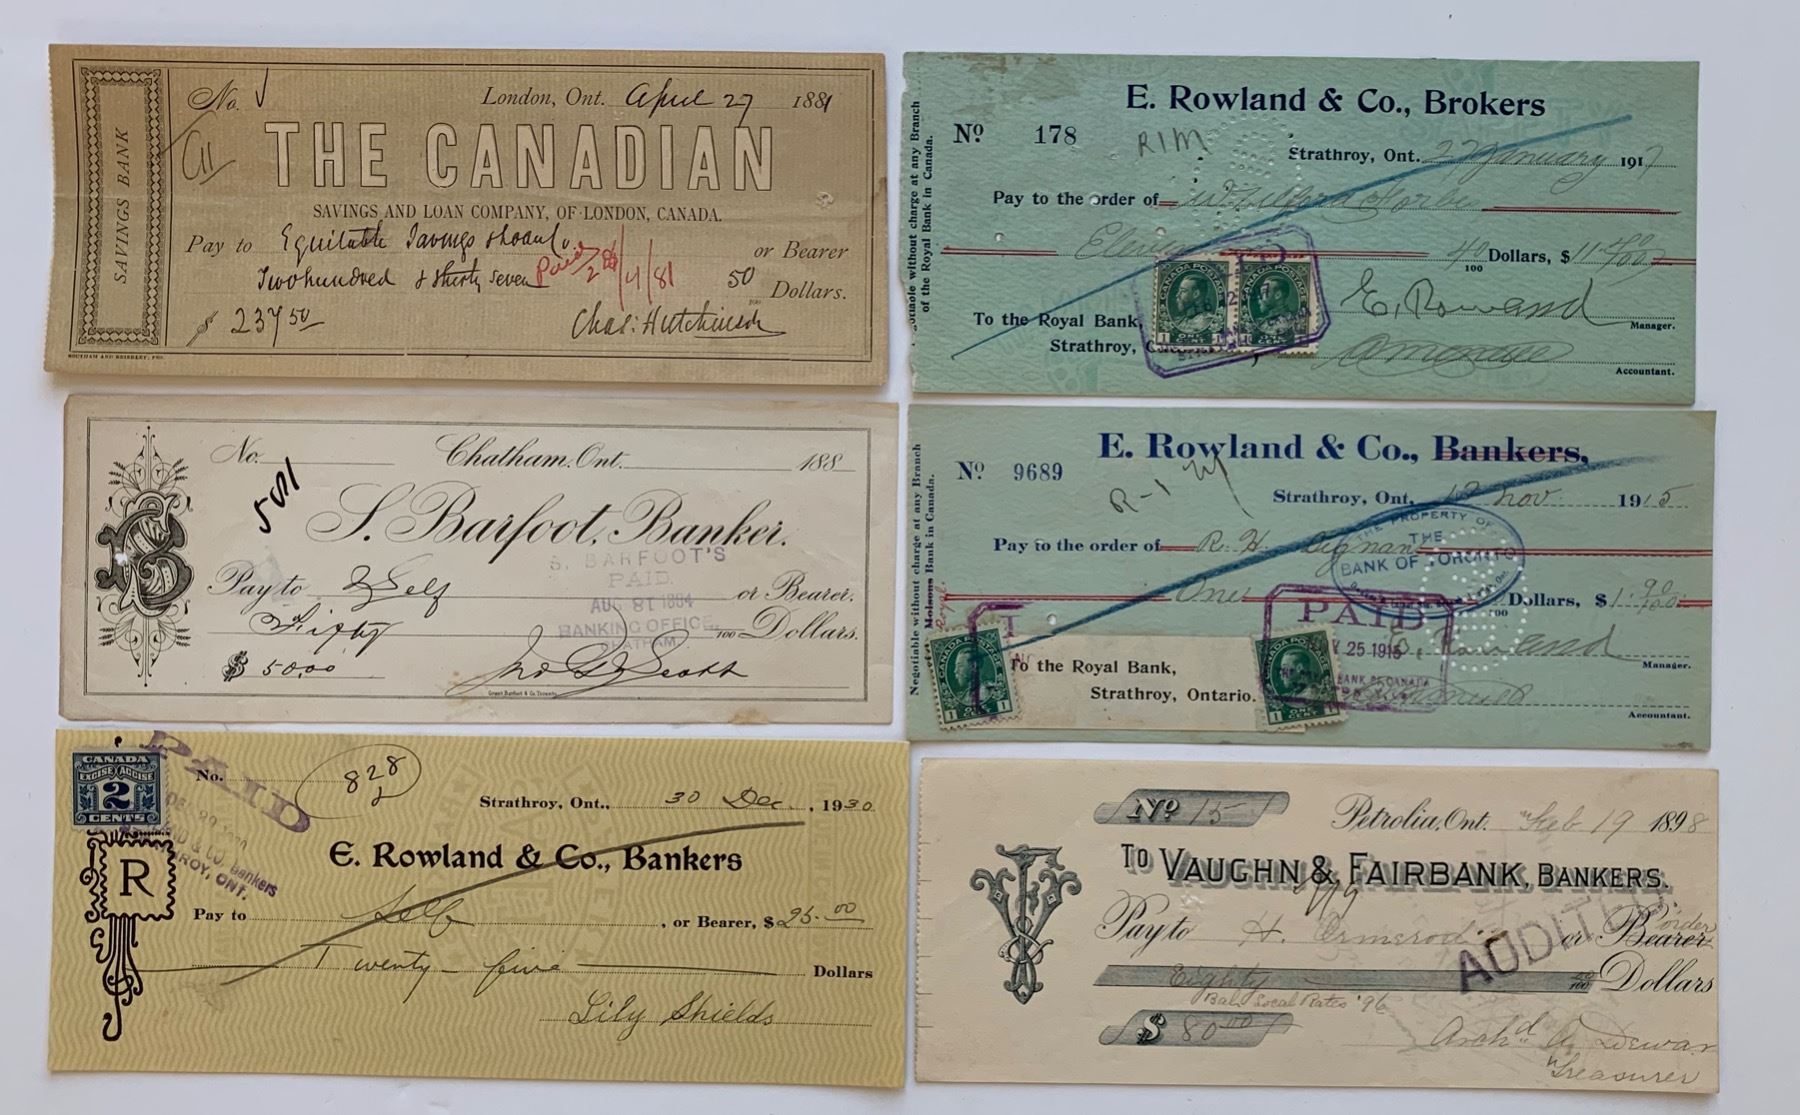 SAVINGS BANK
No.
London, Ont. April 27 1881
THE CANADIAN
SAVINGS AND LOAN COMPANY, OF LONDON, CANADA.
Pay to Equitable Savings & Loan Co. or Bearer
Two hundred & thirty seven 50/100 Dollars.
Paid 28/4/81
$ 237 50
Chas: Hutchinson
SOUTHAM AND BRIERLEY, PRS.
No.
501
Chatham, Ont. 188
S. Barfoot, Banker.
S. BARFOOT'S
PAID.
AUG 31 1884
BANKING OFFICE,
CHATHAM.
Pay to Self or Bearer.
Fifty 100 Dollars.
$ 50.00
Jno G Scott
CANADA
EXCISE ACCISE
2
CENTS
PAID
No. 828
Strathroy, Ont., 30 Dec. , 1930
R
E. Rowland & Co., Bankers
Pay to Self , or Bearer, $ 25.00
Twenty-five Dollars
Lily Shields
E. Rowland & Co., Brokers
No 178
RIM
Strathroy, Ont. 27 January 1917
Negotiable without charge at any Branch
of the Royal Bank in Canada.
Pay to the order of
Eleven 40/100 Dollars, $ 11.40/100
CANADA POSTAGE
1 ONE CENT 1
To the Royal Bank,
Strathroy,
E. Rowland
Manager.
Accountant.
E. Rowland & Co., Bankers,
No 9689
R-1
Strathroy, Ont. 12 Nov. 1915
Negotiable without charge at any Branch
Molsons Bank in Canada.
Royal
Pay to the order of R. H. Dignan
THE PROPERTY OF
THE
BANK OF TORONTO
One Dollars, $ 1.90/100
PAID
25 1915
BANK OF CANADA
CANADA POSTAGE
1 ONE CENT 1
To the Royal Bank,
Strathroy, Ontario.
E. Rowland
Manager.
Accountant.
No 15
Petrolia, Ont. Feb 19 1898
To VAUGHN & FAIRBANK, BANKERS.
Pay to H. Ormerod or Bearer
order
AUDITED
Eighty 00/100 Dollars
Bal. Local Rates '96
$ 80.00
Arch'd A. Dewar
Treasurer